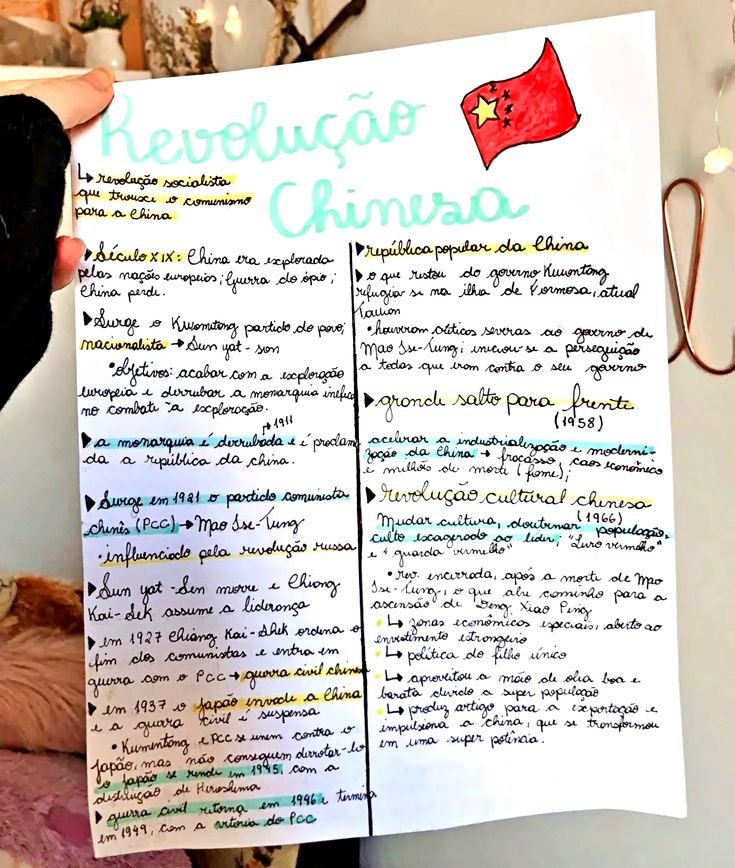 Revolução
Chinesa
↳ revolução socialista
que trouxe o comunismo
para a China
▶ Século XIX: China era explorada
pelas nações europeias; Guerra do ópio;
China perde.
▶ Surge o Kuomitong partido do povo;
nacionalista → Sun yat - sen
• objetivos: acabar com a exploração
europeia e derrubar a monarquia inefica
no combate a exploração.
→ 1911
▶ a monarquia é derrubada e é proclama
da a república da china.
▶ Surge em 1921 o partido comunista
chinês (PCC) → Mao Tse-Tung
• influenciado pela revolução russa
▶ Sun yat - Sen morre e Chiang
Kai-Sek assume a liderança
▶ em 1927 Chiang Kai-Shek ordena o
fim dos comunistas e entra em
guerra com o PCC → guerra civil chinesa
▶ em 1937 o Japão invade a China
e a guerra civil é suspensa
• Kumentong e PCC se unem contra o
Japão, mas não conseguem derrotar-lo
o Japão se rende em 1945, com a
destruição de Hiroshima
▶ guerra civil retorna em 1946 e termina
em 1949, com a vitória do PCC
▶ república popular da China
▶ o que restou do governo Kuwontong
refugia-se na ilha de Formosa, atual
Taiwon
• houveram críticas severas ao governo de
Mao Tse-Tung; iniciou-se a perseguição
a todas que iram contra o seu governo
▶ grande salto para frente
(1958)
acelerar a industrialização e moderni-
zação da China → fracasso, caos econômico
e milhão de morte (fome);
▶ revolução cultural chinesa
(1966)
Mudar cultura, doutrinar população,
culto exagerado ao líder; "Livro vermelho"
e "guarda vermelho"
• rev. encerrada, após a morte de Mao
Tse-Tung, o que abre caminho para a
ascensão de Deng Xiao Ping
↳ zonas econômicas especiais, aberto ao
investimento estrangeiro
↳ política do filho único
↳ aproveitou a mão de obra boa e
barata devido a super população
↳ produz artigo para a exportação e
impulsiona a china, que se transformou
em uma super potência.